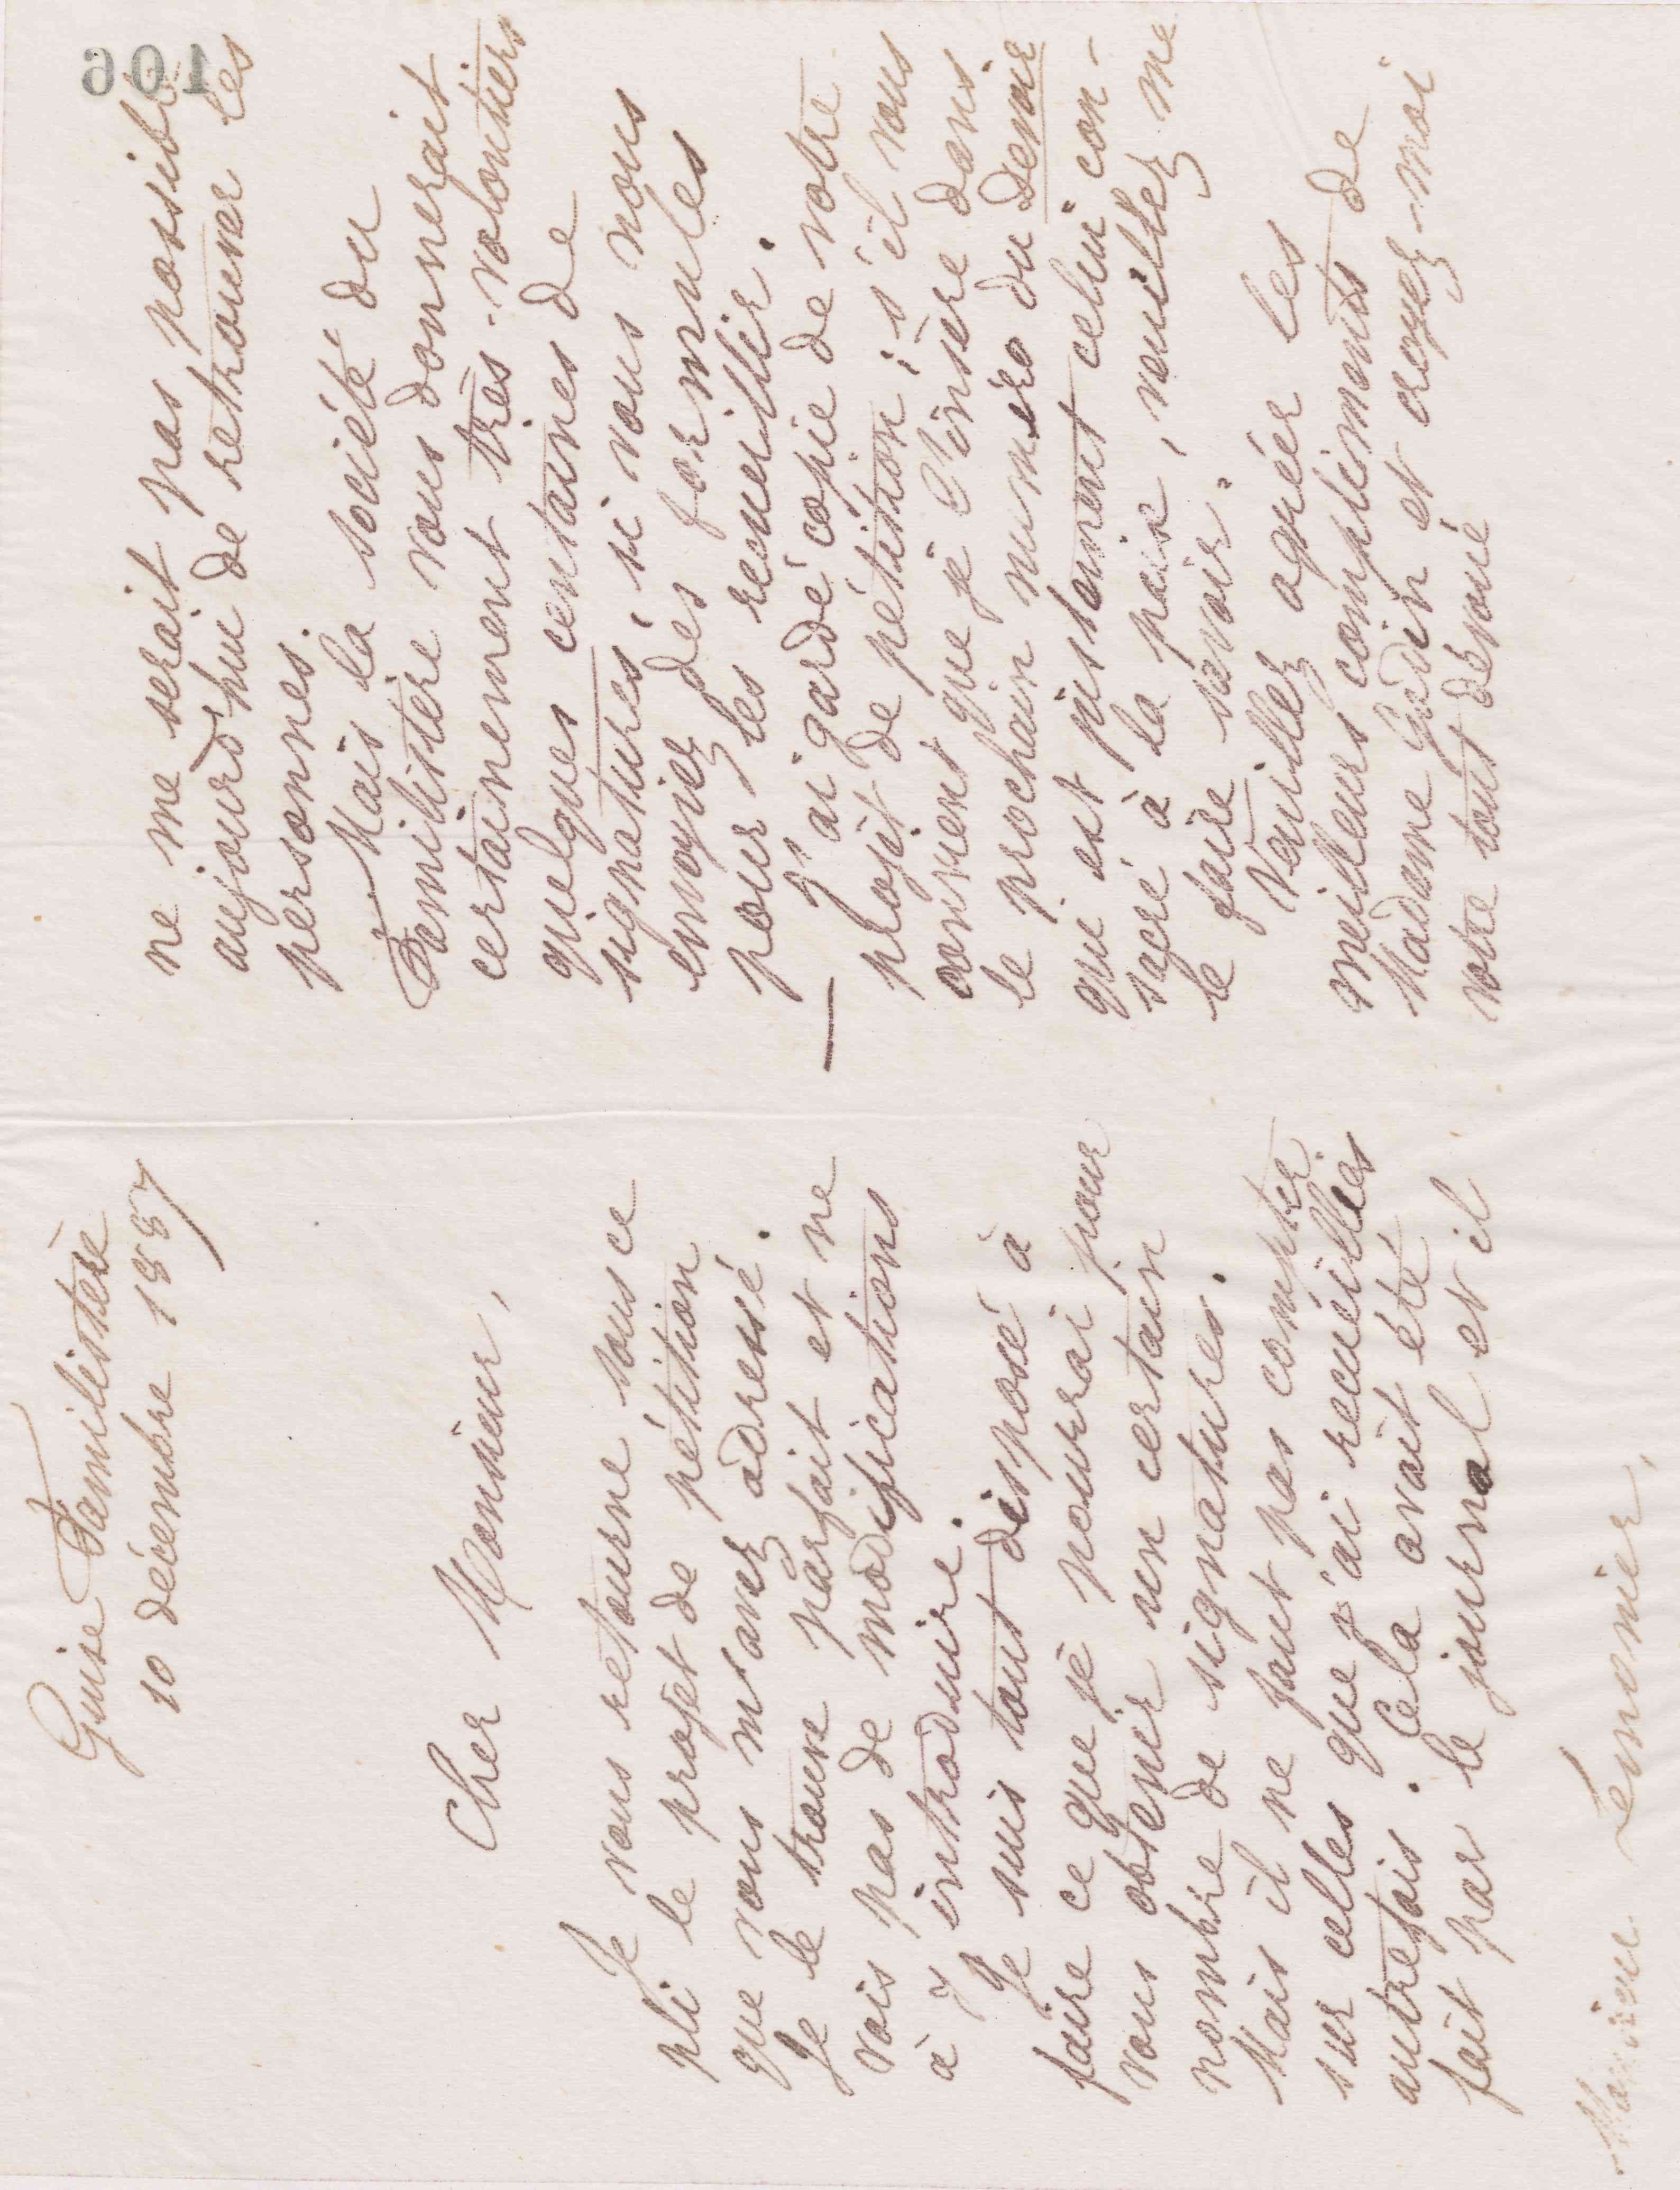 Guise Familistère
10 décembre 1887
Cher Monsieur,
Je vous retourne sous ce
pli le projet de pétition
que vous m'avez adressé.
Je le trouve parfait et ne
vois pas de modifications
à y introduire.
Je suis tout disposé à
faire ce que je pourrai pour
vous obtenir un certain
nombre de signatures.
Mais il ne faut pas compter
sur celles que j'ai recueillies
autrefois. Cela avait été
fait par le journal et il
Monsieur Lemonier,
106
ne me serait pas possible
aujourd'hui de retrouver les
personnes.
Mais la société du
Familistère vous donnerait
certainement très-volontiers
quelques centaines de
signatures, si vous nous
envoyiez des formules
pour les recueillir.
— J'ai gardé copie de votre
projet de pétition ; s'il vous
convient que je l'insère dans
le prochain numéro du Devoir
qui est justement celui con-
sacré à la paix, veuillez me
le faire savoir.
Veuillez agréer les
meilleurs compliments de
Madame Godin et croyez-moi
votre tout dévoué